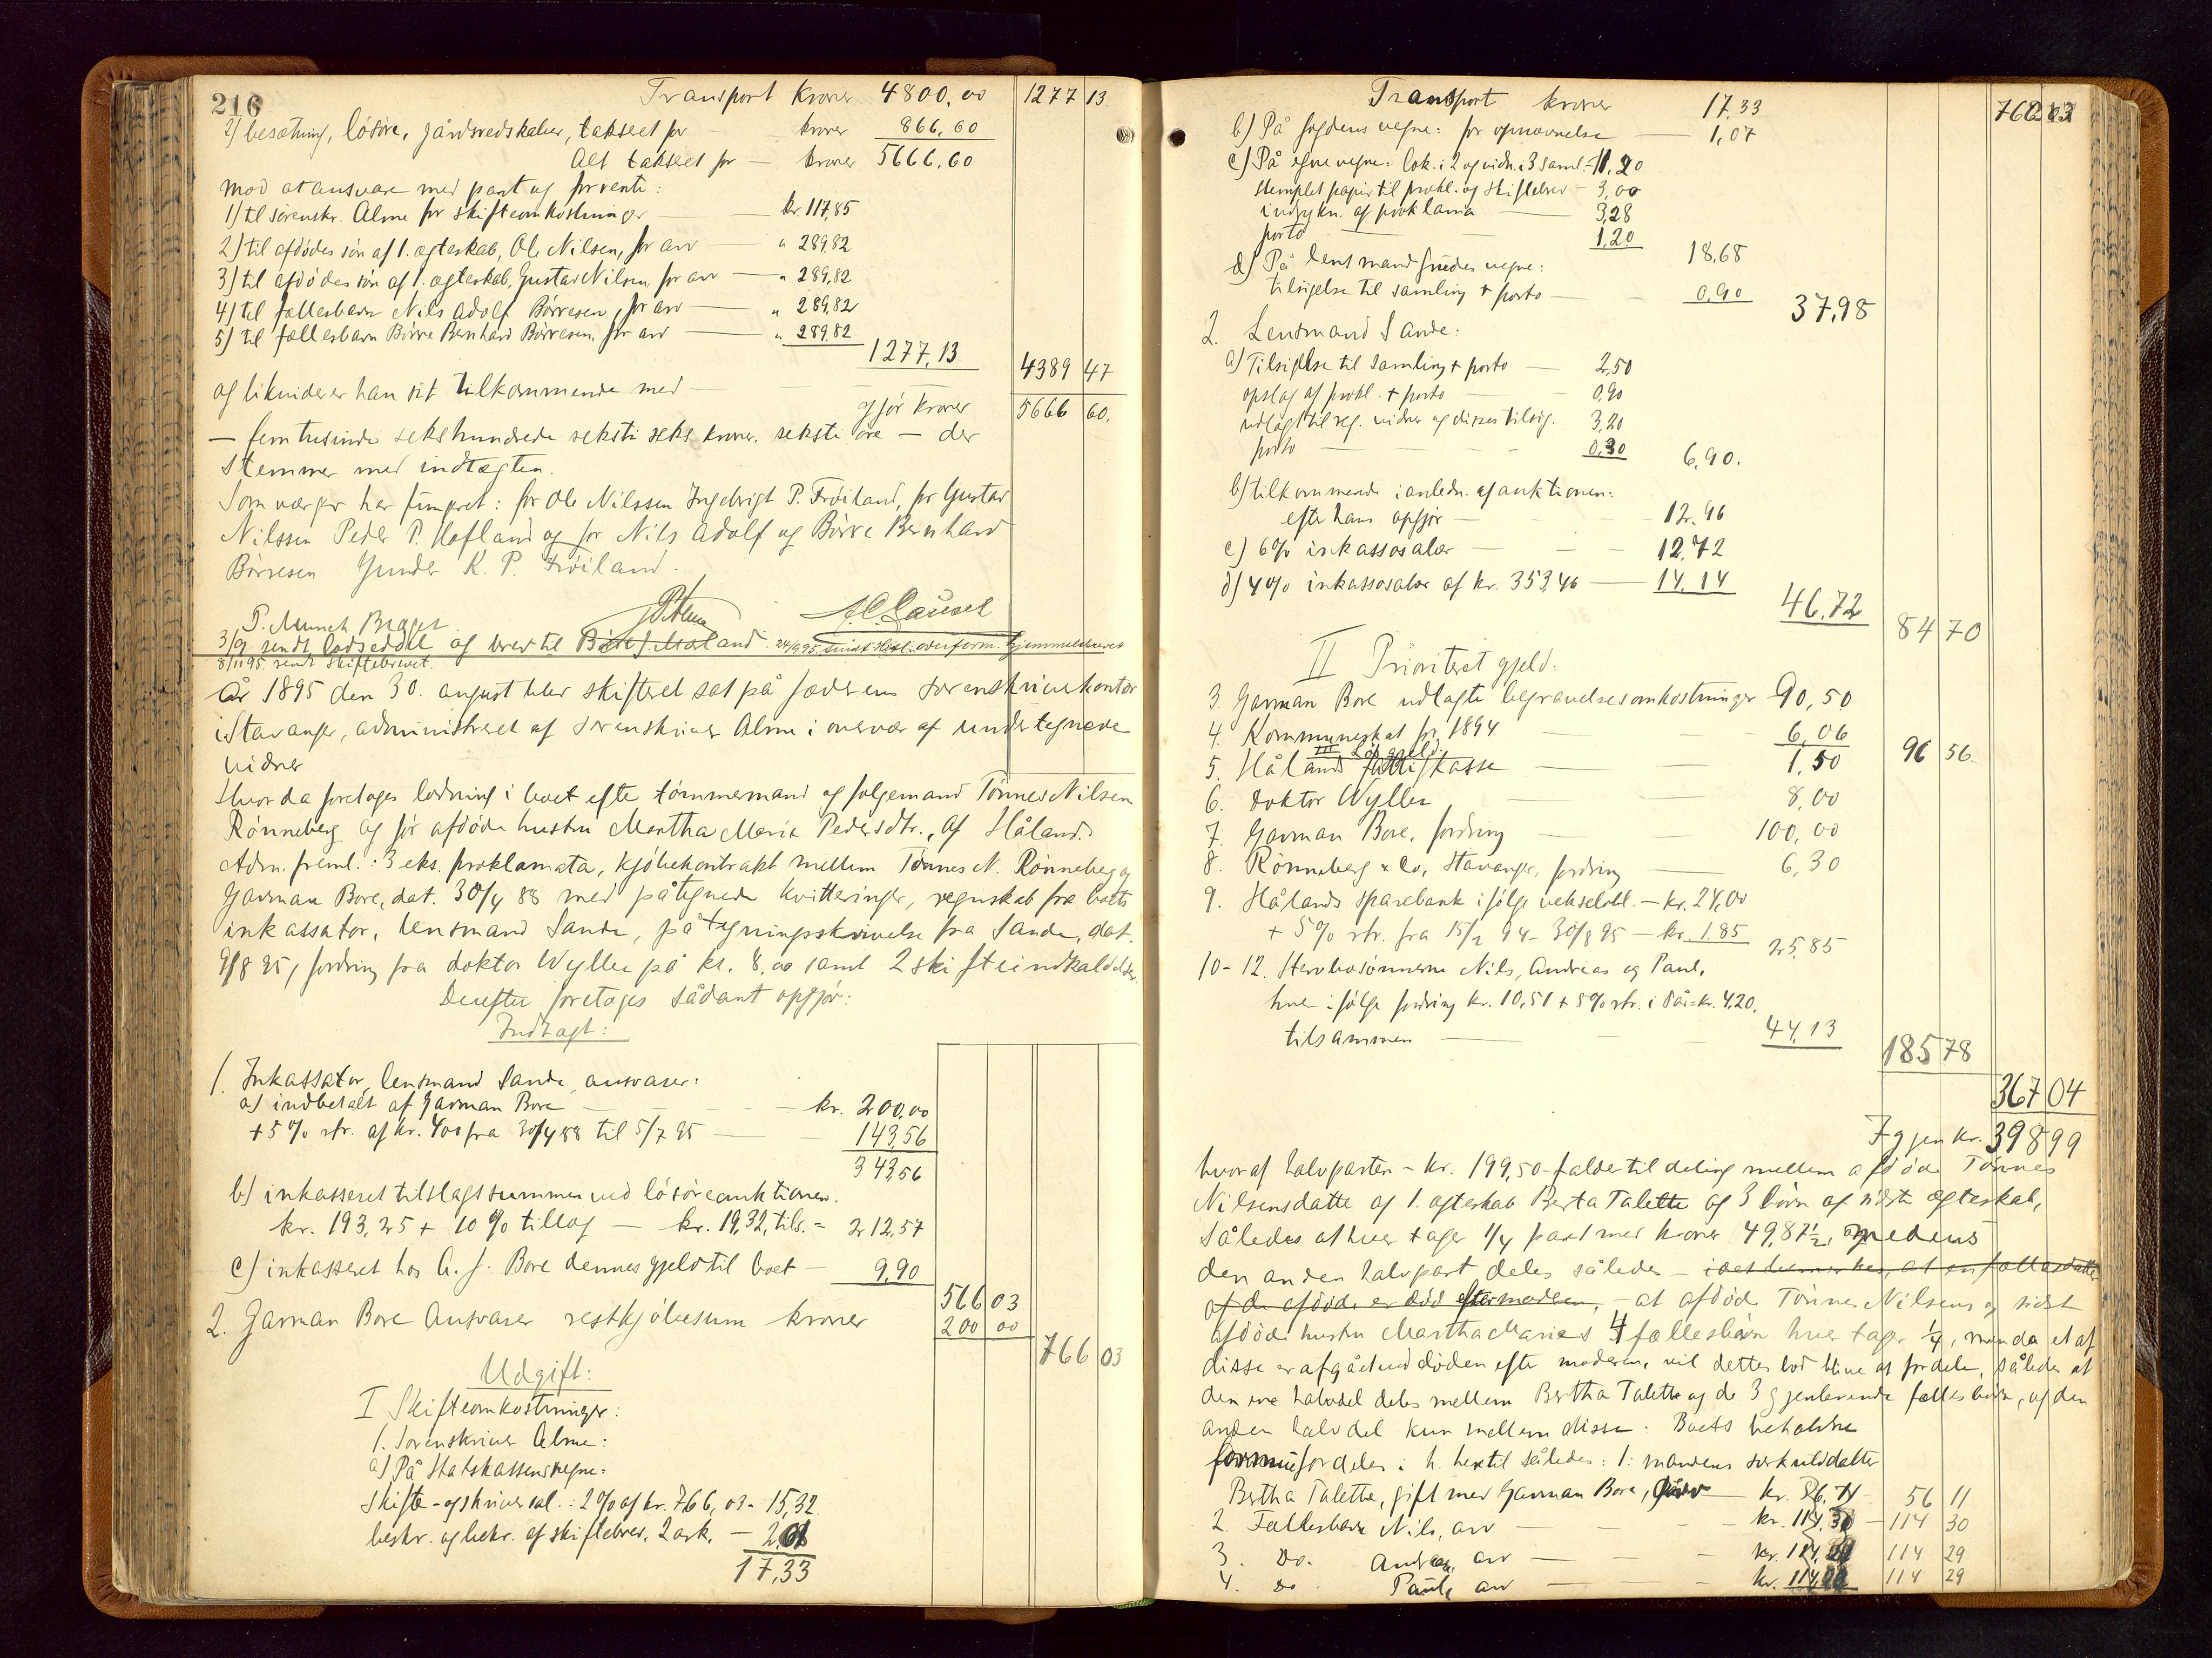 216
Transport kroner 4800,00 1277 13
2) besætning, løsøre, gårdsredskaber, takseret for — kroner 866,60
Alt takseret for — kroner 5666,60
mod at ansvare med pant og forrente:
1) til sorenskr. Alme for skifteomkostninger — kr. 117,85
2) til afdødes søn af 1. ægteskab, Ole Nilsen, for arv — " 289,82
3) til afdødes søn af 1. ægteskab, Gustav Nilsen, for arv — " 289,82
4) til fællesbarn Nils Adolf Børresen, for arv — " 289,82
5) til fællesbarn Børre Bernhard Børresen, for arv — " 289,82
1277,13
og likviderer han sit tilkommende med — 4389 47
gjør kroner 5666 60.
— femtusinde sekshundrede seksti seks kroner, seksti øre — der
stemmer med indtægten.
Som værger har fungeret: for Ole Nilssen Ingebrigt P. Frøiland, for Gustav
Nilssen Peder P. Hofland og for Nils Adolf og Børre Bernhard
Børresen Gunder K. P. Frøiland.
P. Munch
3/9 sendt lodseddel og brev til
8/11 95 sendt skiftebrevet.
År 1895 den 30. august blev skifteret sat på Jæderens sorenskriverkontor
i Stavanger, administreret af sorenskriver Alme i overvær af undertegnede
vidner
Hvor da foretages lodning i boet efter tømmermand og følgemand Tønnes Nilsen
Rønneberg og før afdøde hustru Martha Maria Pedersdtr., af Håland.
Adm. freml.: 3 eks. proklamata, kjøbekontrakt mellem Tønnes N. Rønneberg og
Garman Bore, dat. 30/4 88 med påtegnede kvitteringer, regnskab fra boets
inkassator, lensmand Sande, påtegningsskrivelse fra Sande, dat.
9/8 95, fordring fra doktor Wyller på kr. 8,00 samt 2 skifteindkaldelser.
Derefter foretages sådant opgjør:
Indtægt:
1. Inkassator, lensmand Sande, ansvarer:
a) indbetalt af Garman Bore — kr. 200,00
+ 5% rtr. af kr. 400 fra 30/4 88 til 5/7 95 — 143,56
343,56
b) inkasseret tilslagssummen ved løsøreauktionen.
kr. 193,25 + 10% tillæg — kr. 19,32, tils. = 212,57
c) inkasseret hos G. J. Bore dennes gjeld til boet — 9,90
566 03
2. Garman Bore ansvarer restkjøbesum kroner 200 00
766 03
Udgift:
I Skifteomkostninger:
1. Sorenskriver Alme:
a) På Statskassens vegne:
Skifte- og skriversal.: 2% af kr. 766,03 = 15,32
beskr. og bekr. af skiftebrev, 2 ark. — 2,01
17,33
Transport kroner 17.33 766 03
b) På fogdens vegne: for opnævnelse — 1,07
c) På egne vegne: lok. i 2 og vidn. i 3 saml. = 11,20
stemplet papir til prokl. og skiftebrev — 3,00
indrykn. af proklama — 3,28
porto — 1,20
18,68
d) På lensmand vegne:
tilsigelse til samling + porto — 0,90
37,98
2. Lensmand Sande:
a) Tilsigelse til samling + porto — 2,50
opslag af prokl. + porto — 0,90
udlagt til reg. vidner og disses tilsig. 3,20
porto — 0,30
6,90.
b) tilkommende i anledn. af auktionen:
efter hans opgjør — 12.96
c) 6% inkassosalær — 12,72
d) 4% inkassosalær af kr. 353,46 — 14,14
46,72
84 70
II Prioriteret gjeld:
3. Garman Bore udlagte begravelsesomkostninger 90,50
4. Kommuneskat for 1894 — 6,06
96 56
III Løs gjeld
5. Hålands fattigkasse — 1,50
6. Doktor Wyller — 8,00
7. Garman Bore, fordring — 100,00
8. Rønneberg & Co, Stavanger, fordring — 6,30
9. Hålands sparebank ifølge vekselobl. — kr. 24,00
+ 5% rtr. fra 15/2 94 - 30/8 95 — kr. 1.85 25,85
10-12. Stervbosønnerne Nils, Andreas og Paul,
hver ifølge fordring kr. 10,51 + 5% rtr. i 8 år = kr. 4,20,
tilsammen — 44,13
185 78
367 04
Igjen kr. 398 99
hvoraf halvparten — kr. 199,50 — falder til deling mellem afdøde Tønnes
Nilsens datter af 1. ægteskab Berta Talette og 3 børn af sidste ægteskab,
således at hver tager 1/4 part med kroner 49,87 1/2, medens
den anden halvpart deles således — idet bemærkes, at en fællesdatter
af de afdøde er død efter moderen, — at afdøde Tønnes Nilsens og sidst
afdøde hustru Martha Maries 4 fællesbørn hver tager 1/4, men da et af
disse er afgået ved døden efter moderen, vil dettes lod blive at fordele, således at
den ene halvdel deles mellem Bertha Talette og de 3 gjenlevende fællesbørn, og den
anden halvdel kun mellem disse. Boets beholdne
formue fordeles i h. hertil således: 1. mandens særkulsdatter
Bertha Talette, gift med Garman Bore, arv — kr. 56,11 56 11
2. Fællesbarn Nils, arv — kr. 114,30 — 114 30
3. Do. Andreas, arv — kr. 114,29 114 29
4. Do Paul, arv — kr. 114,29 114 29